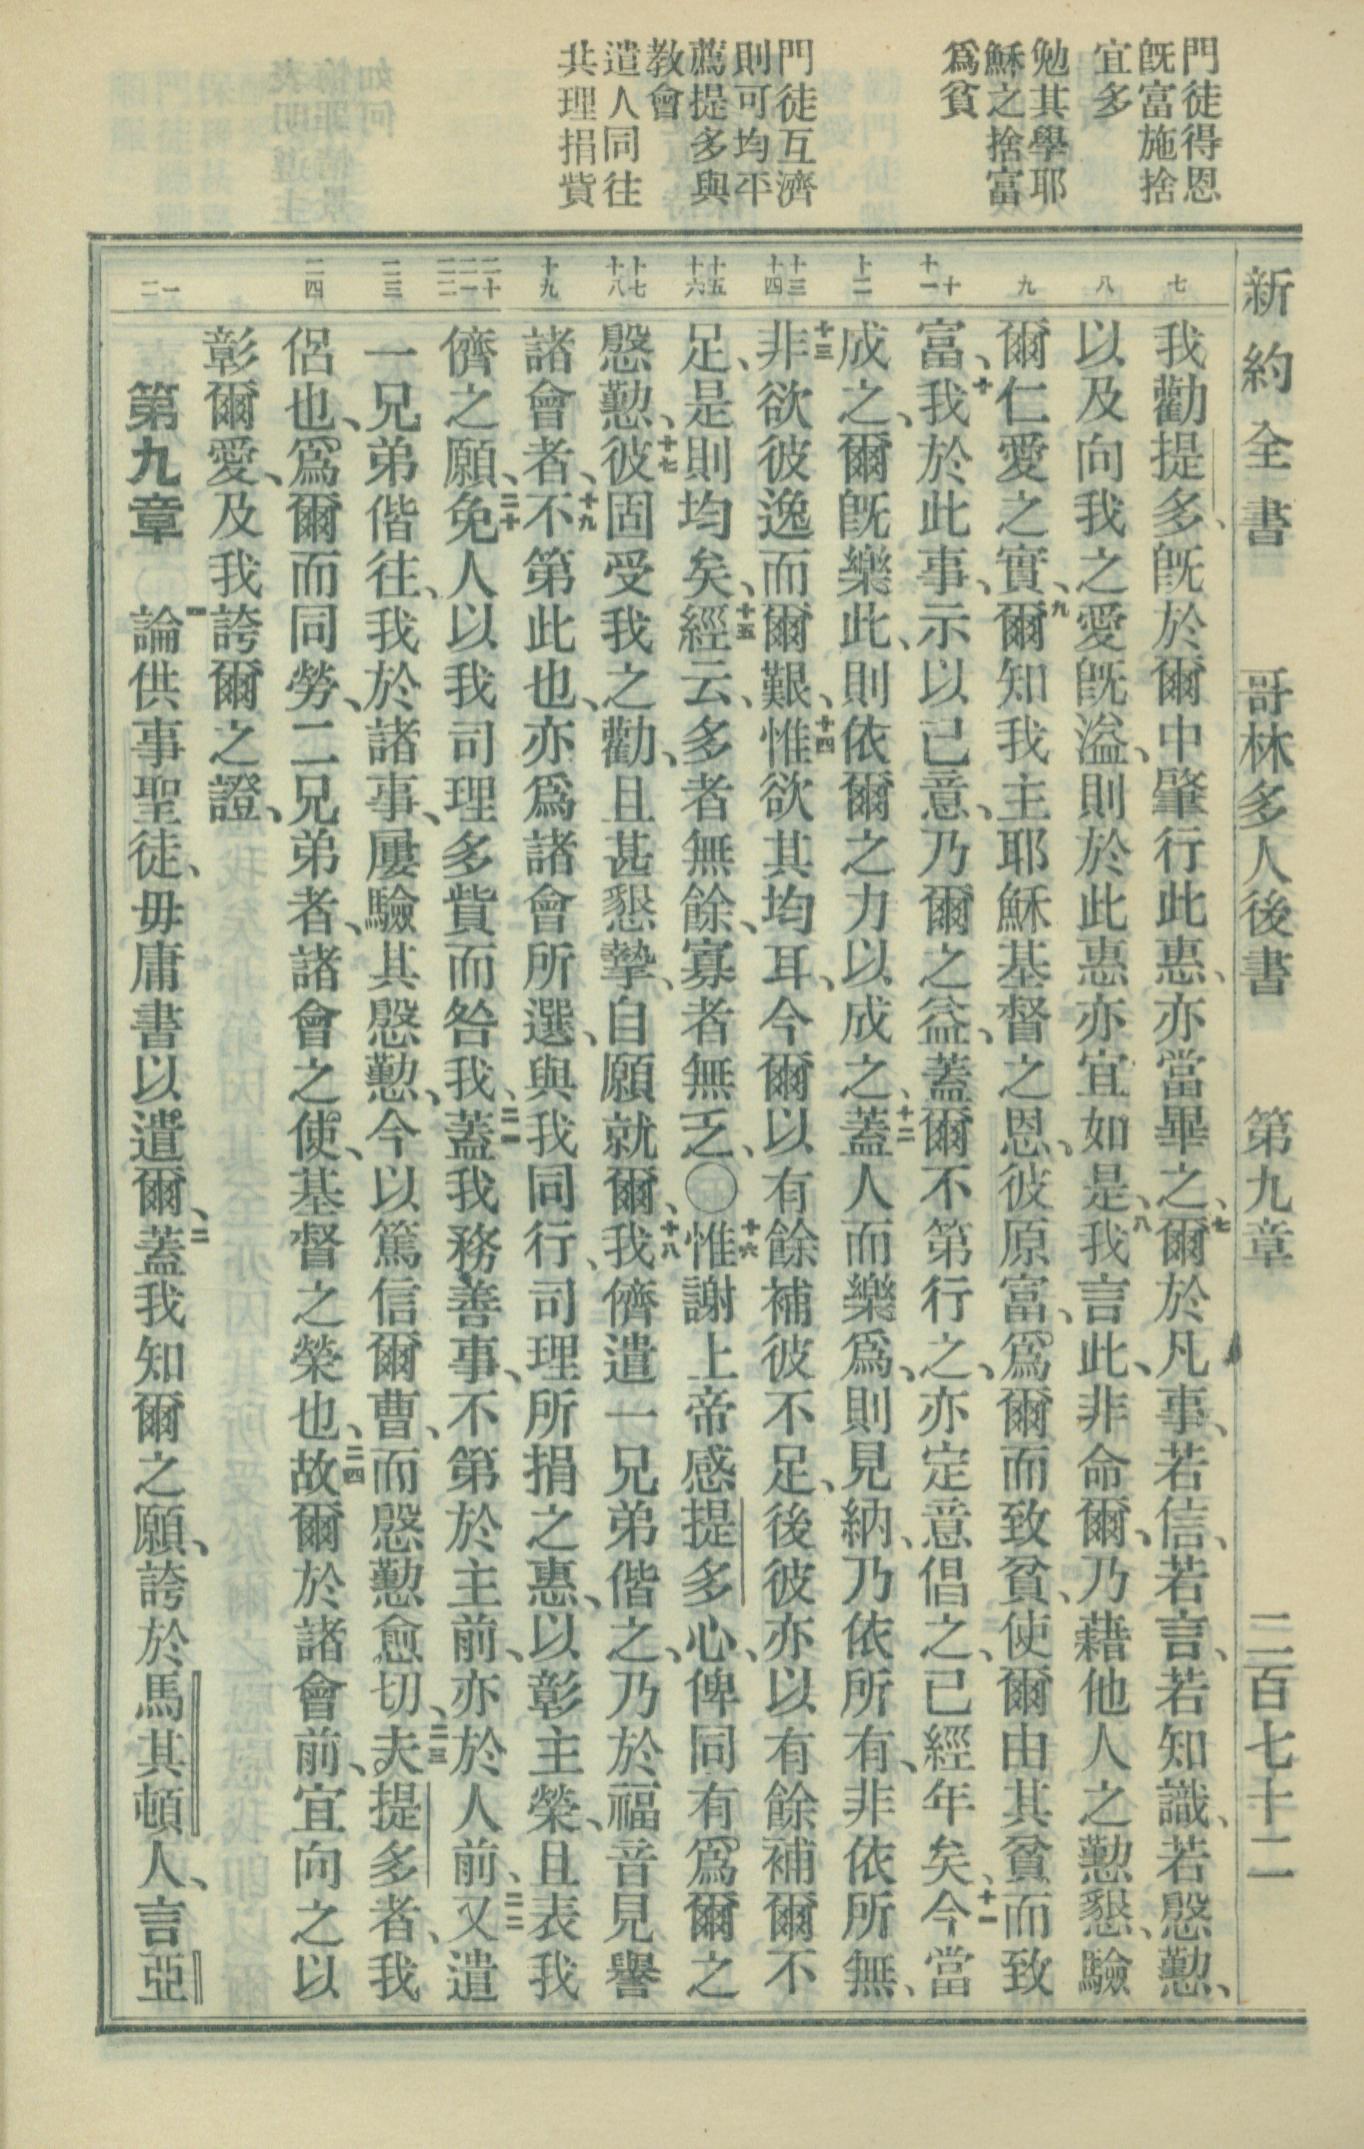 門徒得恩
既富施捨
宜多
勉其學耶
穌之捨富
爲貧
門徒互濟
則可均平
薦提多與
教會
遣人同往
共理捐貲
新約全書　哥林多人後書　第九章　二百七十二
七
八
九
十
十一
十二
十三
十四
十五
十六
十七
十八
十九
二十
二一
二二
二三
二四
一
二
我勸提多、既於爾中肇行此惠、亦當畢之、七爾於凡事、若信、若言、若知識、若慇懃、
以及向我之愛既溢、則於此惠亦宜如是、八我言此、非命爾、乃藉他人之懃懇、驗
爾仁愛之實、九爾知我主耶穌基督之恩、彼原富、爲爾而致貧、使爾由其貧而致
富、十我於此事、示以己意、乃爾之益、蓋爾不第行之、亦定意倡之、已經年矣、十一今當
成之、爾既樂此、則依爾之力以成之、十二蓋人而樂爲、則見納、乃依所有、非依所無、
十三非欲彼逸而爾艱、十四惟欲其均耳、今爾以有餘補彼不足、後彼亦以有餘補爾不
足、是則均矣、十五經云、多者無餘、寡者無乏、〇十六惟謝上帝感提多心、俾同有爲爾之
慇懃、十七彼固受我之勸、且甚懇摯、自願就爾、十八我儕遣一兄弟偕之、乃於福音見譽
諸會者、十九不第此也、亦爲諸會所選、與我同行、司理所捐之惠、以彰主榮、且表我
儕之願、二十免人以我司理多貲而咎我、二一蓋我務善事、不第於主前、亦於人前、二二又遣
一兄弟偕往、我於諸事、屢驗其慇懃、今以篤信爾曹、而慇懃愈切、二三夫提多者、我
侶也、爲爾而同勞、二兄弟者、諸會之使、基督之榮也、二四故爾於諸會前、宜向之以
彰爾愛、及我誇爾之證、
第九章　一論供事聖徒、毋庸書以遺爾、二蓋我知爾之願、誇於馬其頓人、言亞